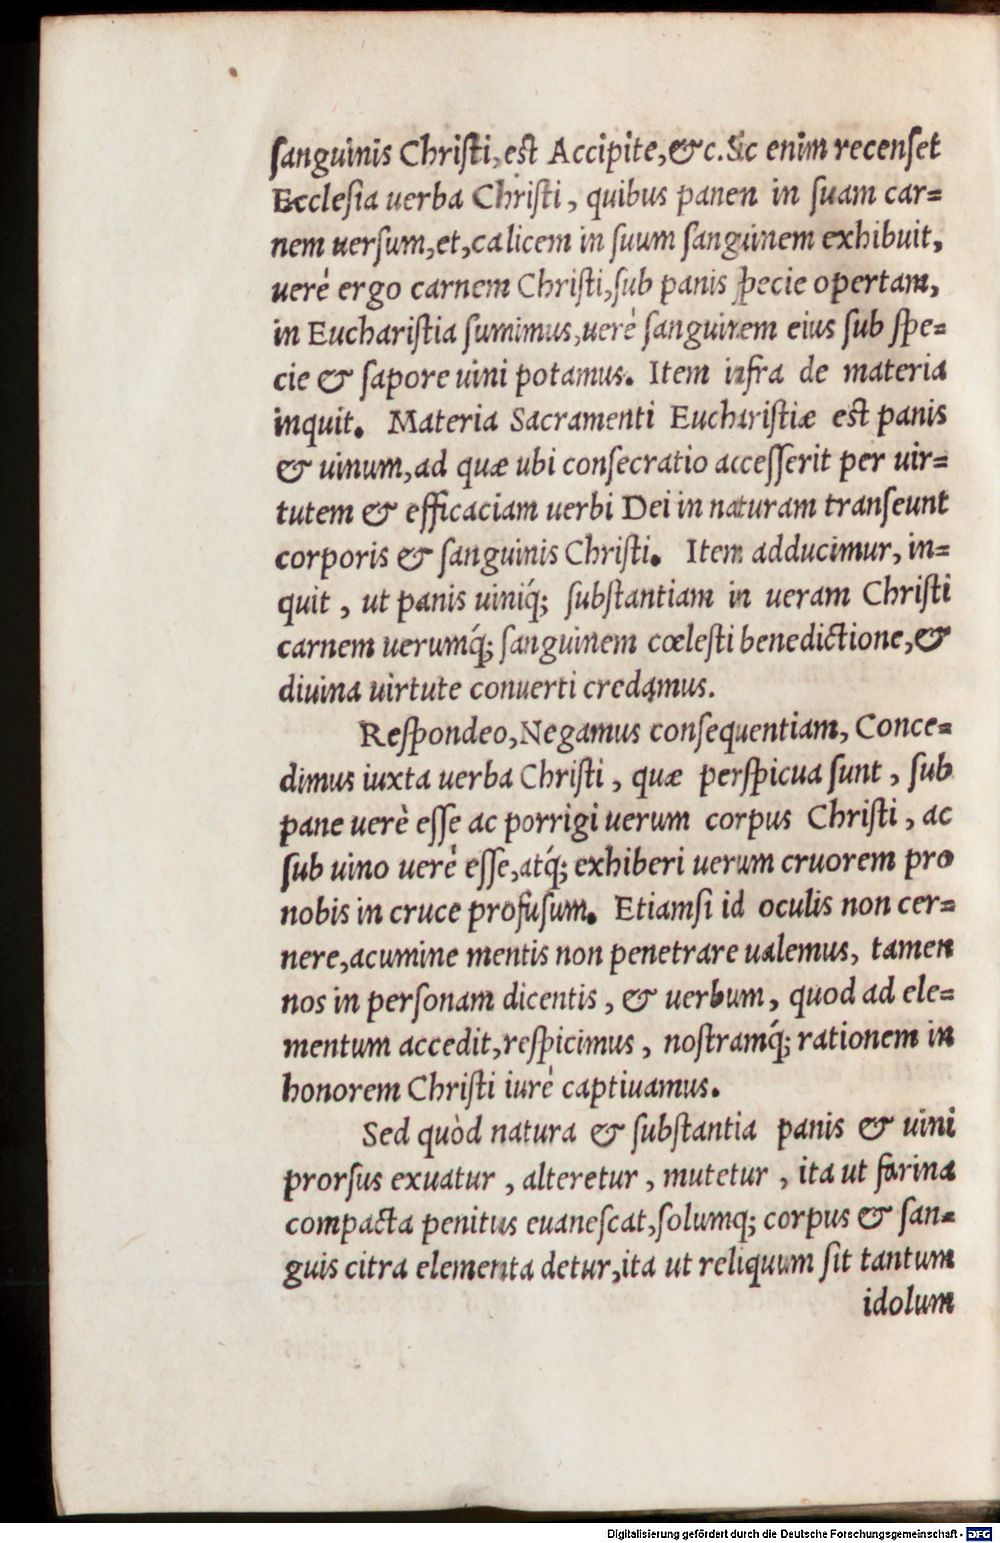 sanguinis Christi, est Accipite, &c. Sic enim recenset
Ecclesia uerba Christi, quibus panen in suam car=
nem uersum, et, calicem in suum sanguinem exhibuit,
uerè ergo carnem Christi, sub panis specie opertam,
in Eucharistia sumimus, uerè sanguinem eius sub spe=
cie & sapore uini potamus. Item infra de materia
inquit. Materia Sacramenti Eucharistiæ est panis
& uinum, ad quæ ubi consecratio accesserit per uir=
tutem & efficaciam uerbi Dei in naturam transeunt
corporis & sanguinis Christi. Item adducimur, in=
quit, ut panis uiniq́; substantiam in ueram Christi
carnem uerumq́; sanguinem cœlesti benedictione, &
diuina uirtute conuerti credamus.
Respondeo, Negamus consequentiam, Conce=
dimus iuxta uerba Christi, quæ perspicua sunt, sub
pane uerè esse ac porrigi uerum corpus Christi, ac
sub uino uerè esse, atq́; exhiberi uerum cruorem pro
nobis in cruce profusum. Etiamsi id oculis non cer=
nere, acumine mentis non penetrare ualemus, tamen
nos in personam dicentis, & uerbum, quod ad ele=
mentum accedit, respicimus, nostramq́; rationem in
honorem Christi iurè captiuamus.
Sed quòd natura & substantia panis & uini
prorsus exuatur, alteretur, mutetur, ita ut farina
compacta penitus euanescat, solumq; corpus & san=
guis citra elementa detur, ita ut reliquum sit tantum
idolum
Digitalisierung gefördert durch die Deutsche Forschungsgemeinschaft - DFG